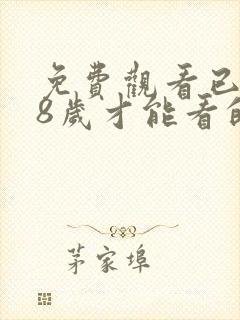 免費觀看已
8歲才能看的
茅家埠